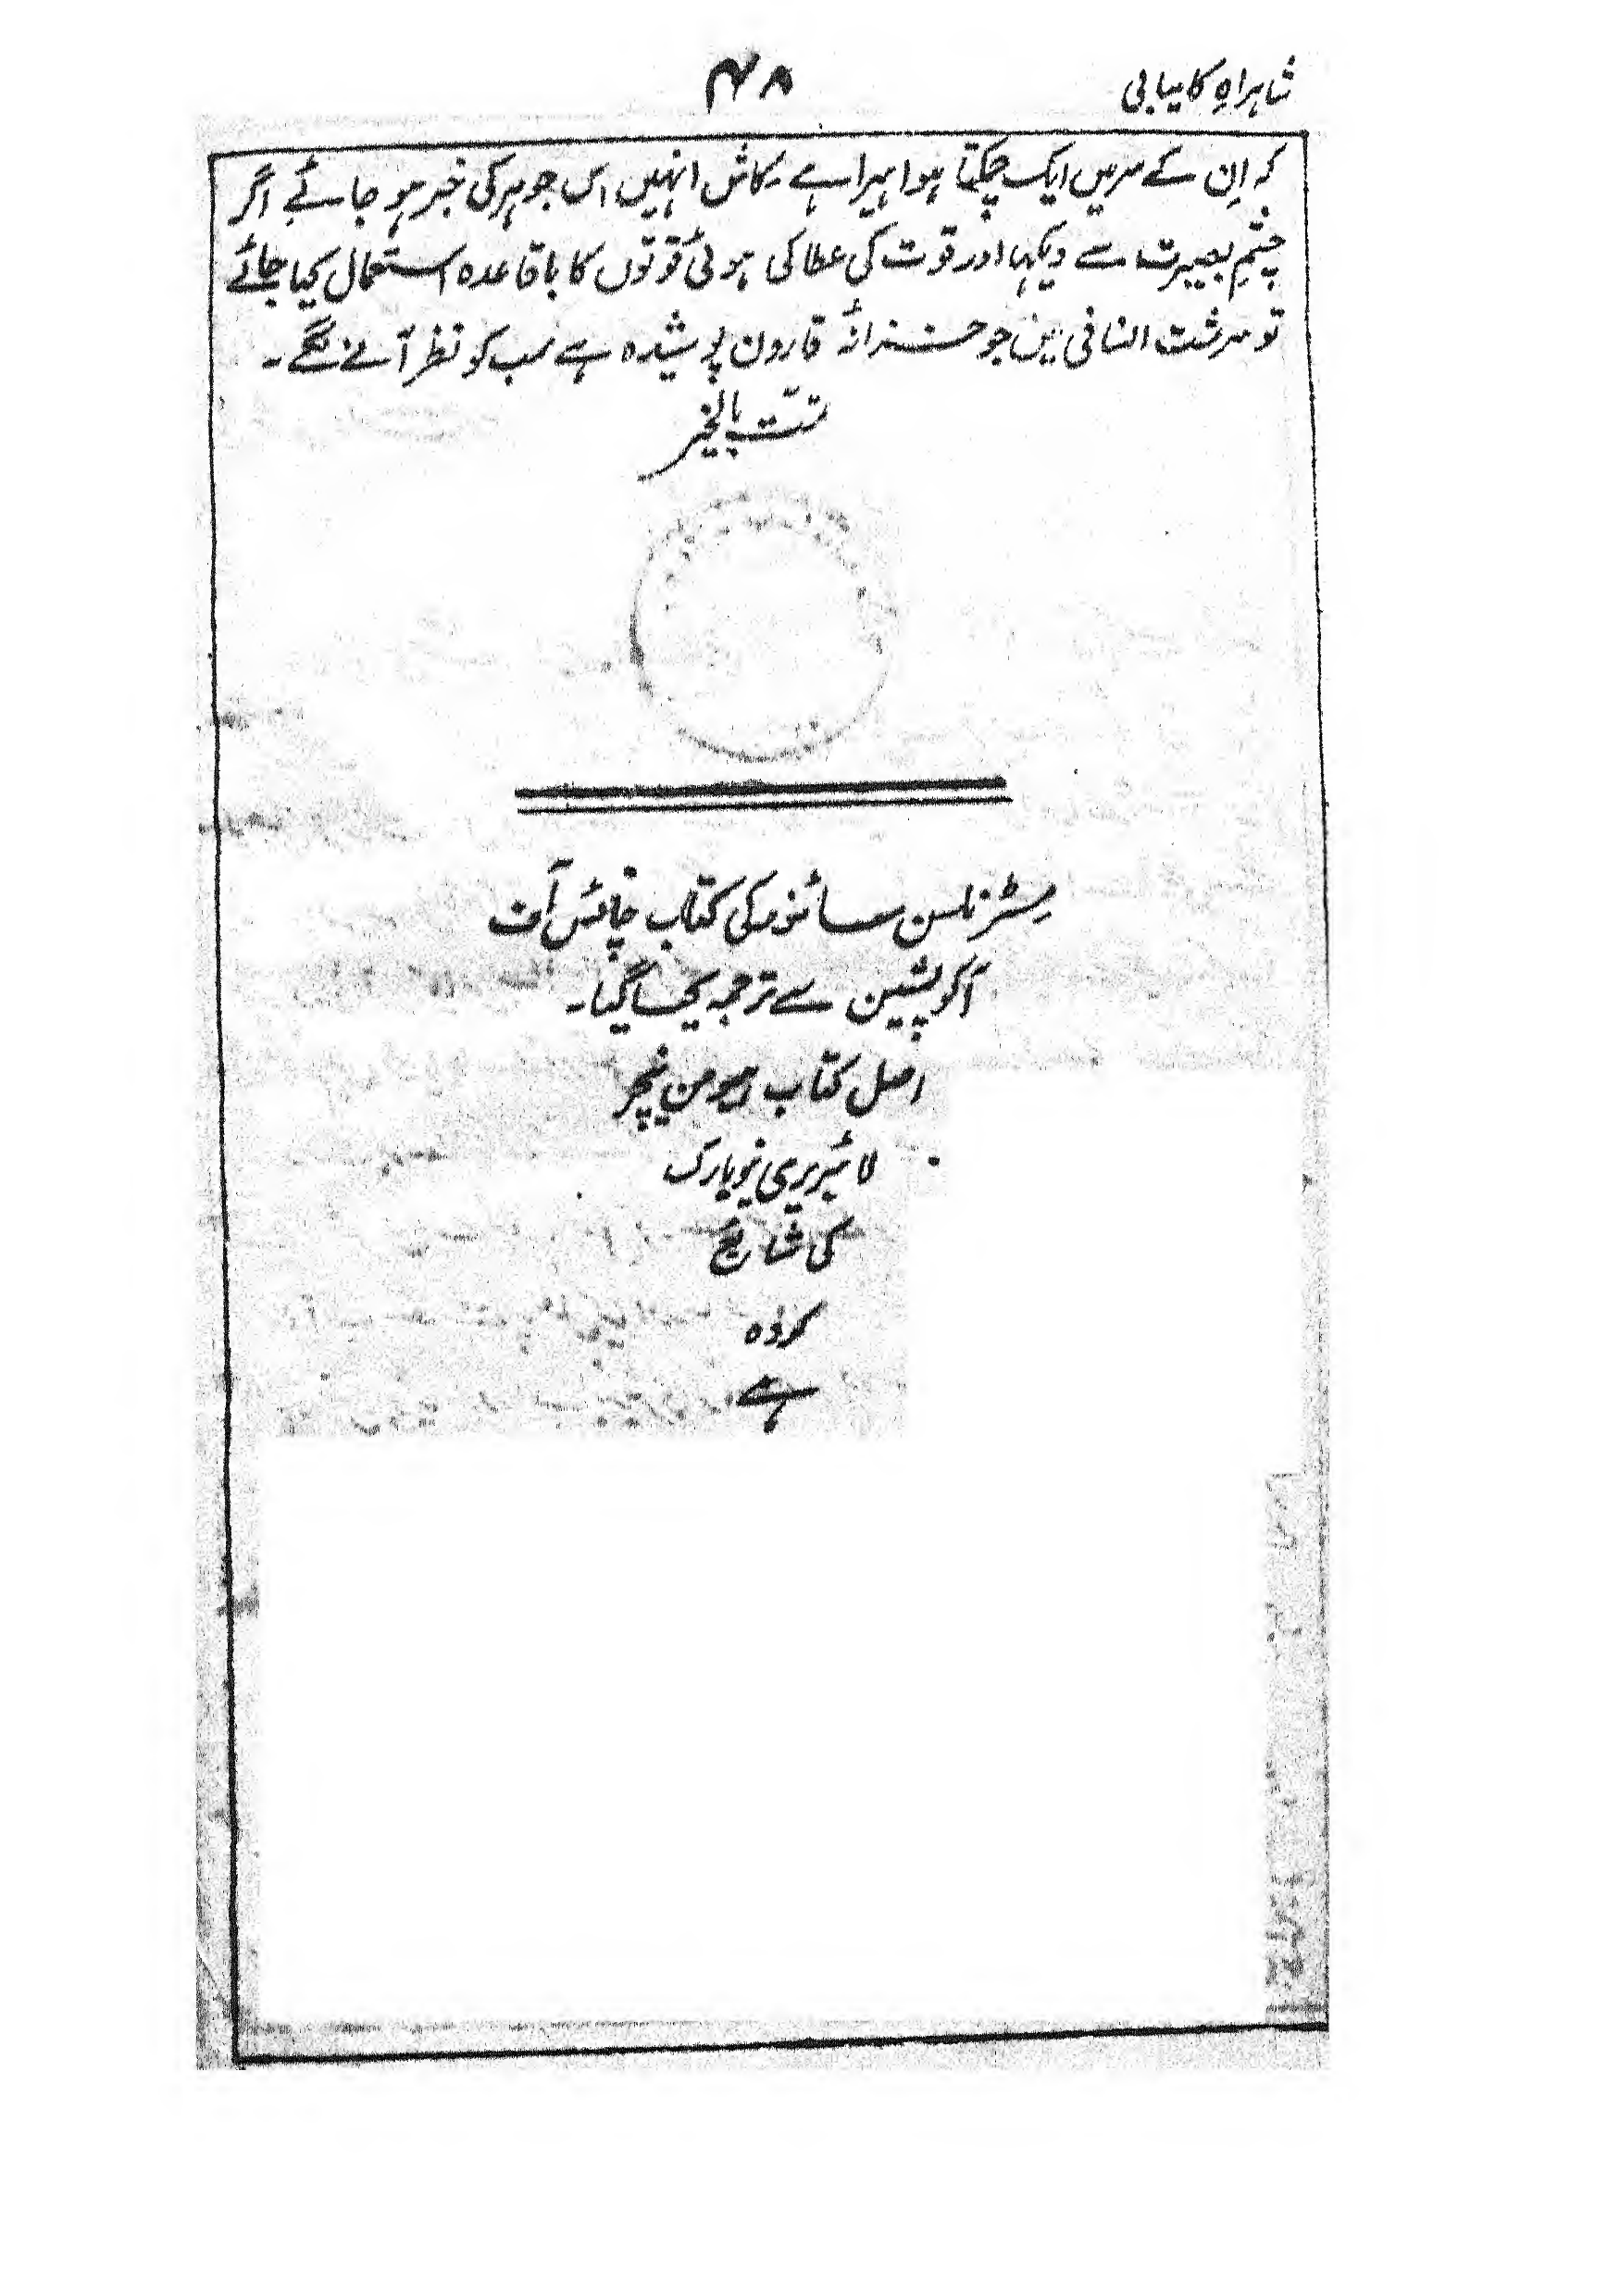 شاہراہِ کامیابی
۴۸
کہ اِن کے سر میں ایک چمکتا ہوا ہیرا ہے ۔ کاش انہیں اس جوہر کی خبر ہو جائے اگر
چشمِ بصیرت سے دیکہا اور قوت کی عطا کی ہوئی قوتوں کا باقاعدہ استعمال کیا جائے
تو سرشت انسانی میں جو خزانۂ قارون پوشیدہ ہے سب کو نظر آنے لگے ۔
تمّت بالخیر
مسٹر نلسن سائزر کی کتاب چائس آف
آکوپشین سے ترجمہ کیا گیا ۔
اصل کتاب ہیومن نیچر
لائبریری نیویارک
کی شائع
کردہ
ہے